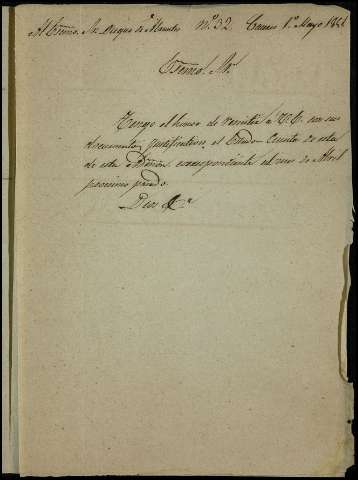 Al Exmo. Sr. Duque de Nº 32 Mayo
Exmo. Sr.
Tengo el honor de remitir a V.E. con sus
documentos justificativos, el Estado Cuenta de
de esta correspondiente al mes de Abril
proximo pasado.
Dios &ª